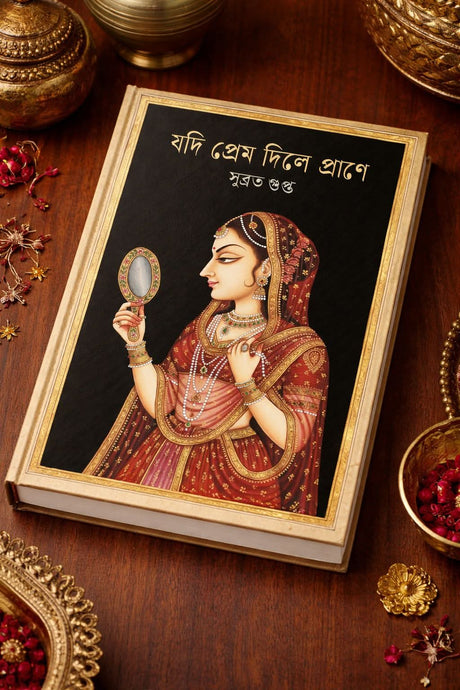 যদি প্রেম দিলে প্রাণে
সুব্রত গুপ্ত